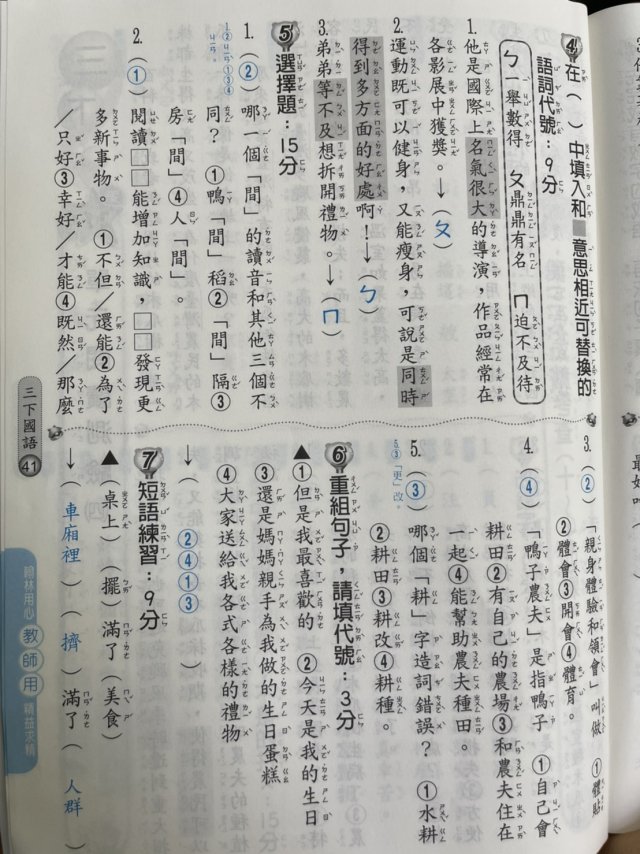 4 在（ ）中填入和■意思相近可替換的
語詞代號：9分
ㄅ一舉數得　ㄆ鼎鼎有名　ㄇ迫不及待
1.他是國際上名氣很大的導演，作品經常在
各影展中獲獎。→（ㄆ）
2.運動既可以健身，又能瘦身，可說是同時
得到多方面的好處啊！→（ㄅ）
3.弟弟等不及想拆開禮物。→（ㄇ）
5 選擇題：15分
1.（②）哪一個「間」的讀音和其他三個不
同？①鴨「間」稻②「間」隔③
房「間」④人「間」。
1.②ㄐㄧㄢˋ①③④
ㄐㄧㄢ。
2.（①）閱讀□□能增加知識，□□發現更
多新事物。①不但／還能②為了
／只好③幸好／才能④既然／那麼
3.（②）「親身體驗和領會」叫做①體貼
②體會③開會④體育。
4.（④）「鴨子農夫」是指鴨子①自己會
耕田②有自己的農場③和農夫住在
一起④能幫助農夫種田。
5.（③）哪個「耕」字造詞錯誤？①水耕
②耕田③耕改④耕種。
5.③「更」改。
6 重組句子，請填代號：3分
▲①但是我最喜歡的②今天是我的生日
③還是媽媽親手為我做的生日蛋糕
④大家送給我各式各樣的禮物
→（②④①③）
7 短語練習：9分
▲（桌上）（擺）滿了（美食）
→（車廂裡）（擠）滿了（人群）
三下國語 41
翰林用心 教師用 精益求精